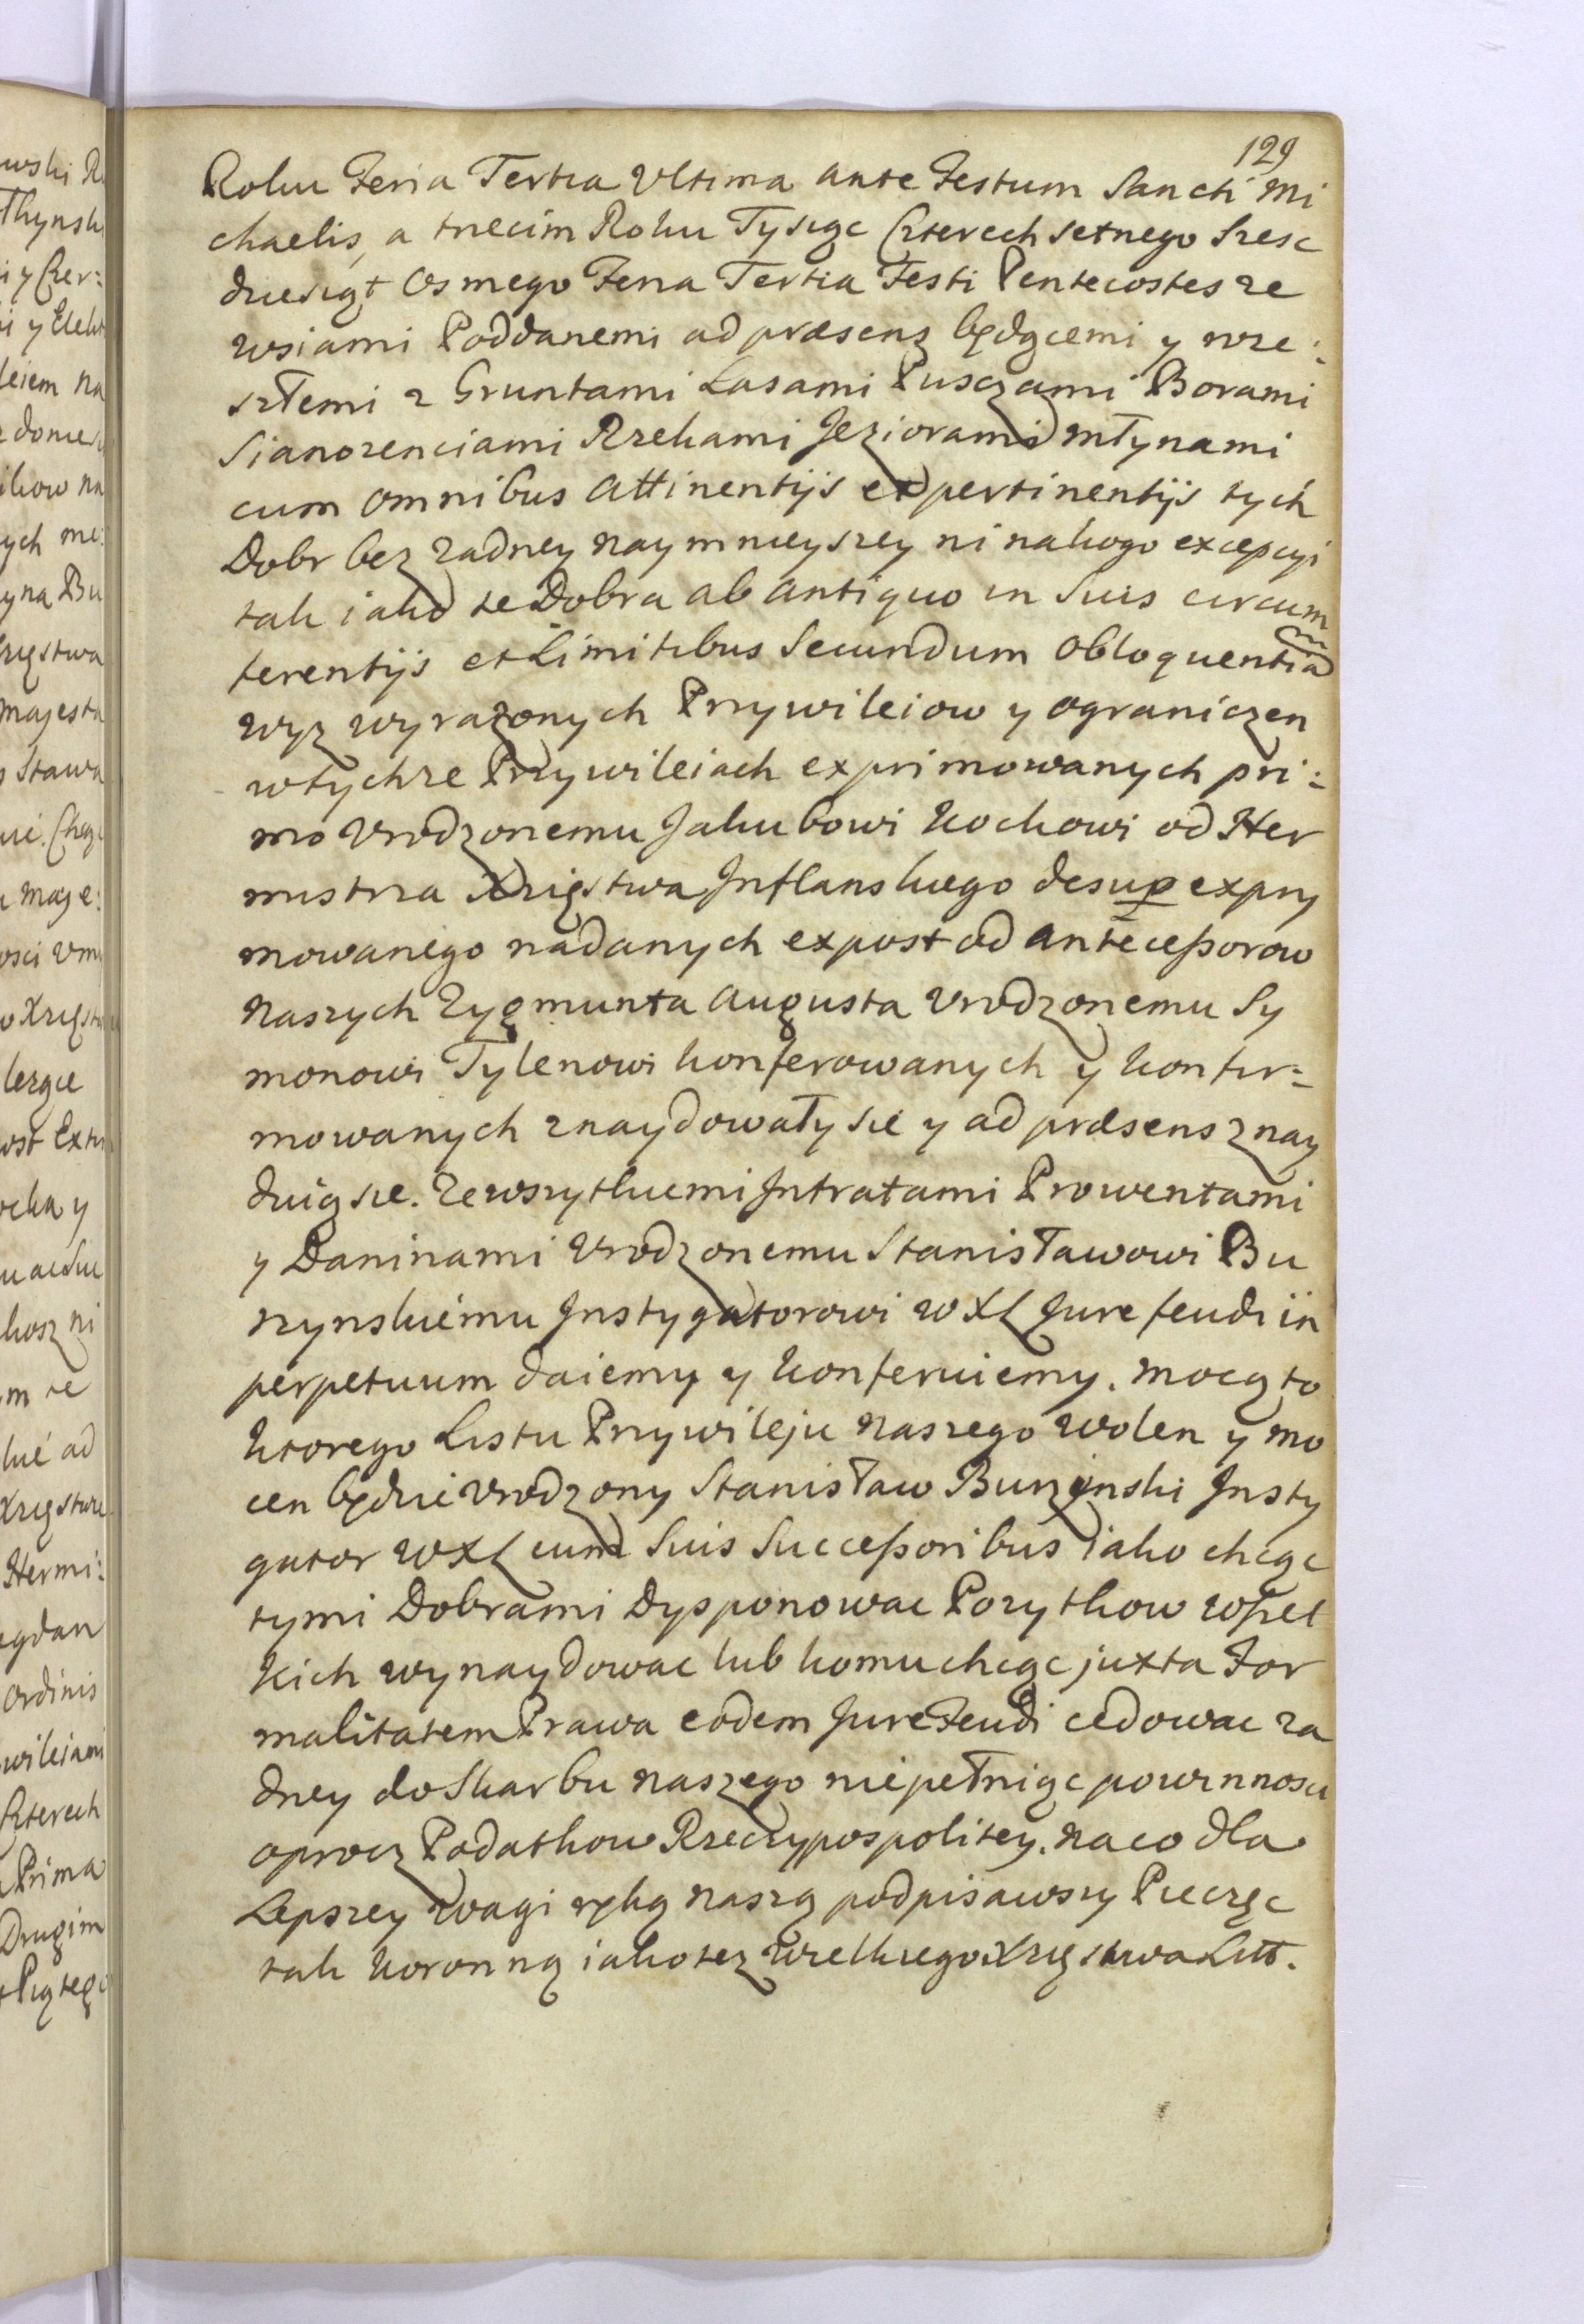 129
Roku Feria Tertia Ultima ante Festum Sancti Mi
chaelis, a trzecim Roku Tysiąc Czterech setnego Szesc
dziesiąt Osmego Feria Tertia Festi Pentecostes ze
wsiami Poddanemi ad præsens będącemi y wze:
szłemi z Gruntami Lasami Pusczami Borami
Sianozenciami Rzekami Jeziorami młynami
cum omnibus attinentijs et pertinentijs tych
Dobr bez zadney naymnieyszey ni nakogo excepcyi
tak iako te Dobra ab antiquo in Suis circum
ferentijs et Limitibus Secundum obloquentiam
wyz wyrazonych Przywileiow y ograniczen
wtychze Przywileiach exprimowanych pri:
mo Urodzonemu Jakubowi Kochowi od Her
mistrza Xięstwa Inflanskiego desup expry
mowanego nadanych expost od anteceßorow
Naszych Zygmunta Augusta Urodzonemu Sy
monowi Tylenowi konferowanych y konfir=
mowanych znaydowały sie y ad præsens znay
duią sie. Ze wszytkiemi Intratami Prowentami
y Daninami Urodzonemu Stanisławowi Bu
rzynskiemu Instygatorowi WXL Jure feudi in
perpetuum daiemy y konferuiemy. Mocą to
ktorego Listu Przywileju Naszego wolen y mo
cen będzie Urodzony Stanisław Burzynski Insty
gator WXL cum Suis Succeßoribus iako chcąc
tymi Dobrami Dysponowac Pozytkow wßel
kich wynaydowac lub komu chcąc juxta For
malitatem Prawa eodem Jure Feudi cedowac za
dney do Skarbu naszego niepełniąc powinnosci
oprocz Podatkow Rzeczypospolitey. Na co dla
Lepszey Wagi ręką naszą podpisawszy Pieczęc
tak koronną iako tez Wielkiego Xięstwa Litt.